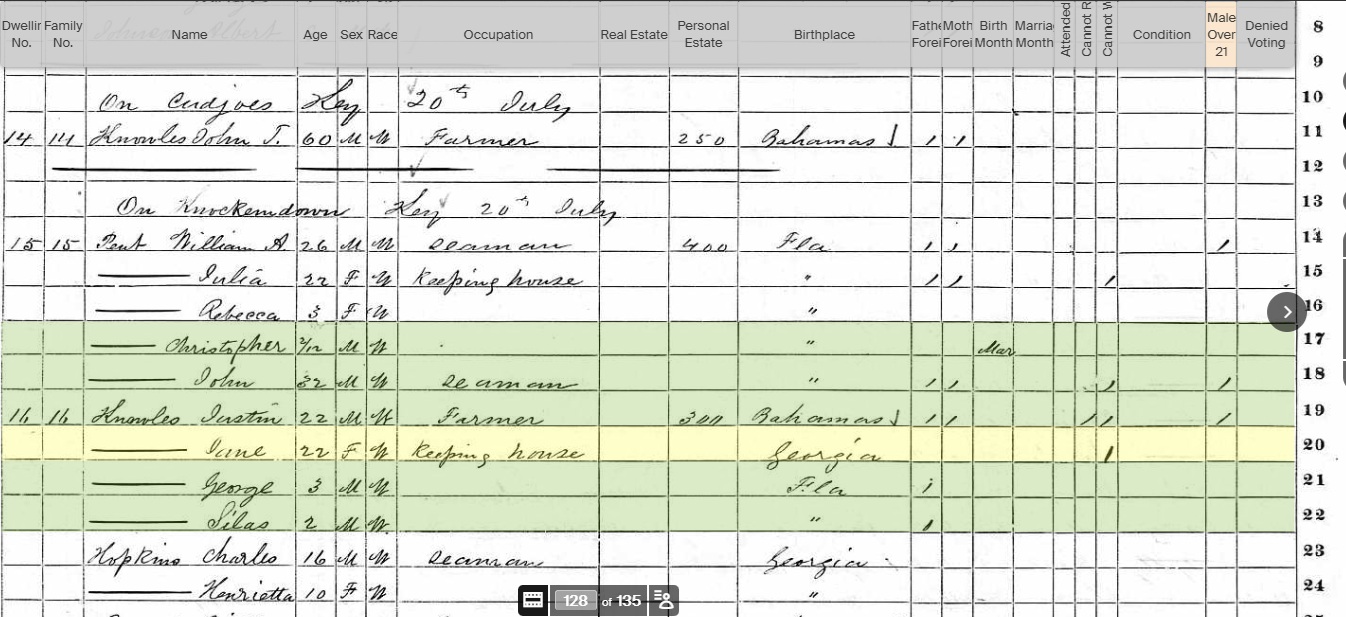 Dwellin No. Family No. Name Age Sex Race Occupation Real Estate Personal Estate Birthplace Fathe Forei Moth Forei Birth Month Marria Month Attended Cannot R Cannot W Condition Male Over 21 Denied Voting 8
9
On Cudjoes Key 20th July 10
14 14 Knowles John T. 60 M W Farmer 250 Bahamas / / 11
12
On Knockemdown Key 20th July 13
15 15 Pent William A 26 M W Seaman 400 Fla / / / 14
—— Julia 22 F W Keeping house " / / / 15
—— Rebecca 3 F W " 16
—— Christopher 2/12 M W " Mar 17
—— John 32 M W Seaman " / / / / 18
16 16 Knowles Justin 22 M W Farmer 300 Bahamas / / / / / 19
—— Jane 22 F W Keeping house Georgia / 20
—— George 3 M W Fla / 21
—— Silas 2 M W " / 22
Hopkins Charles 16 M W Seaman Georgia 23
—— Henrietta 10 F W " 24
128 of 135